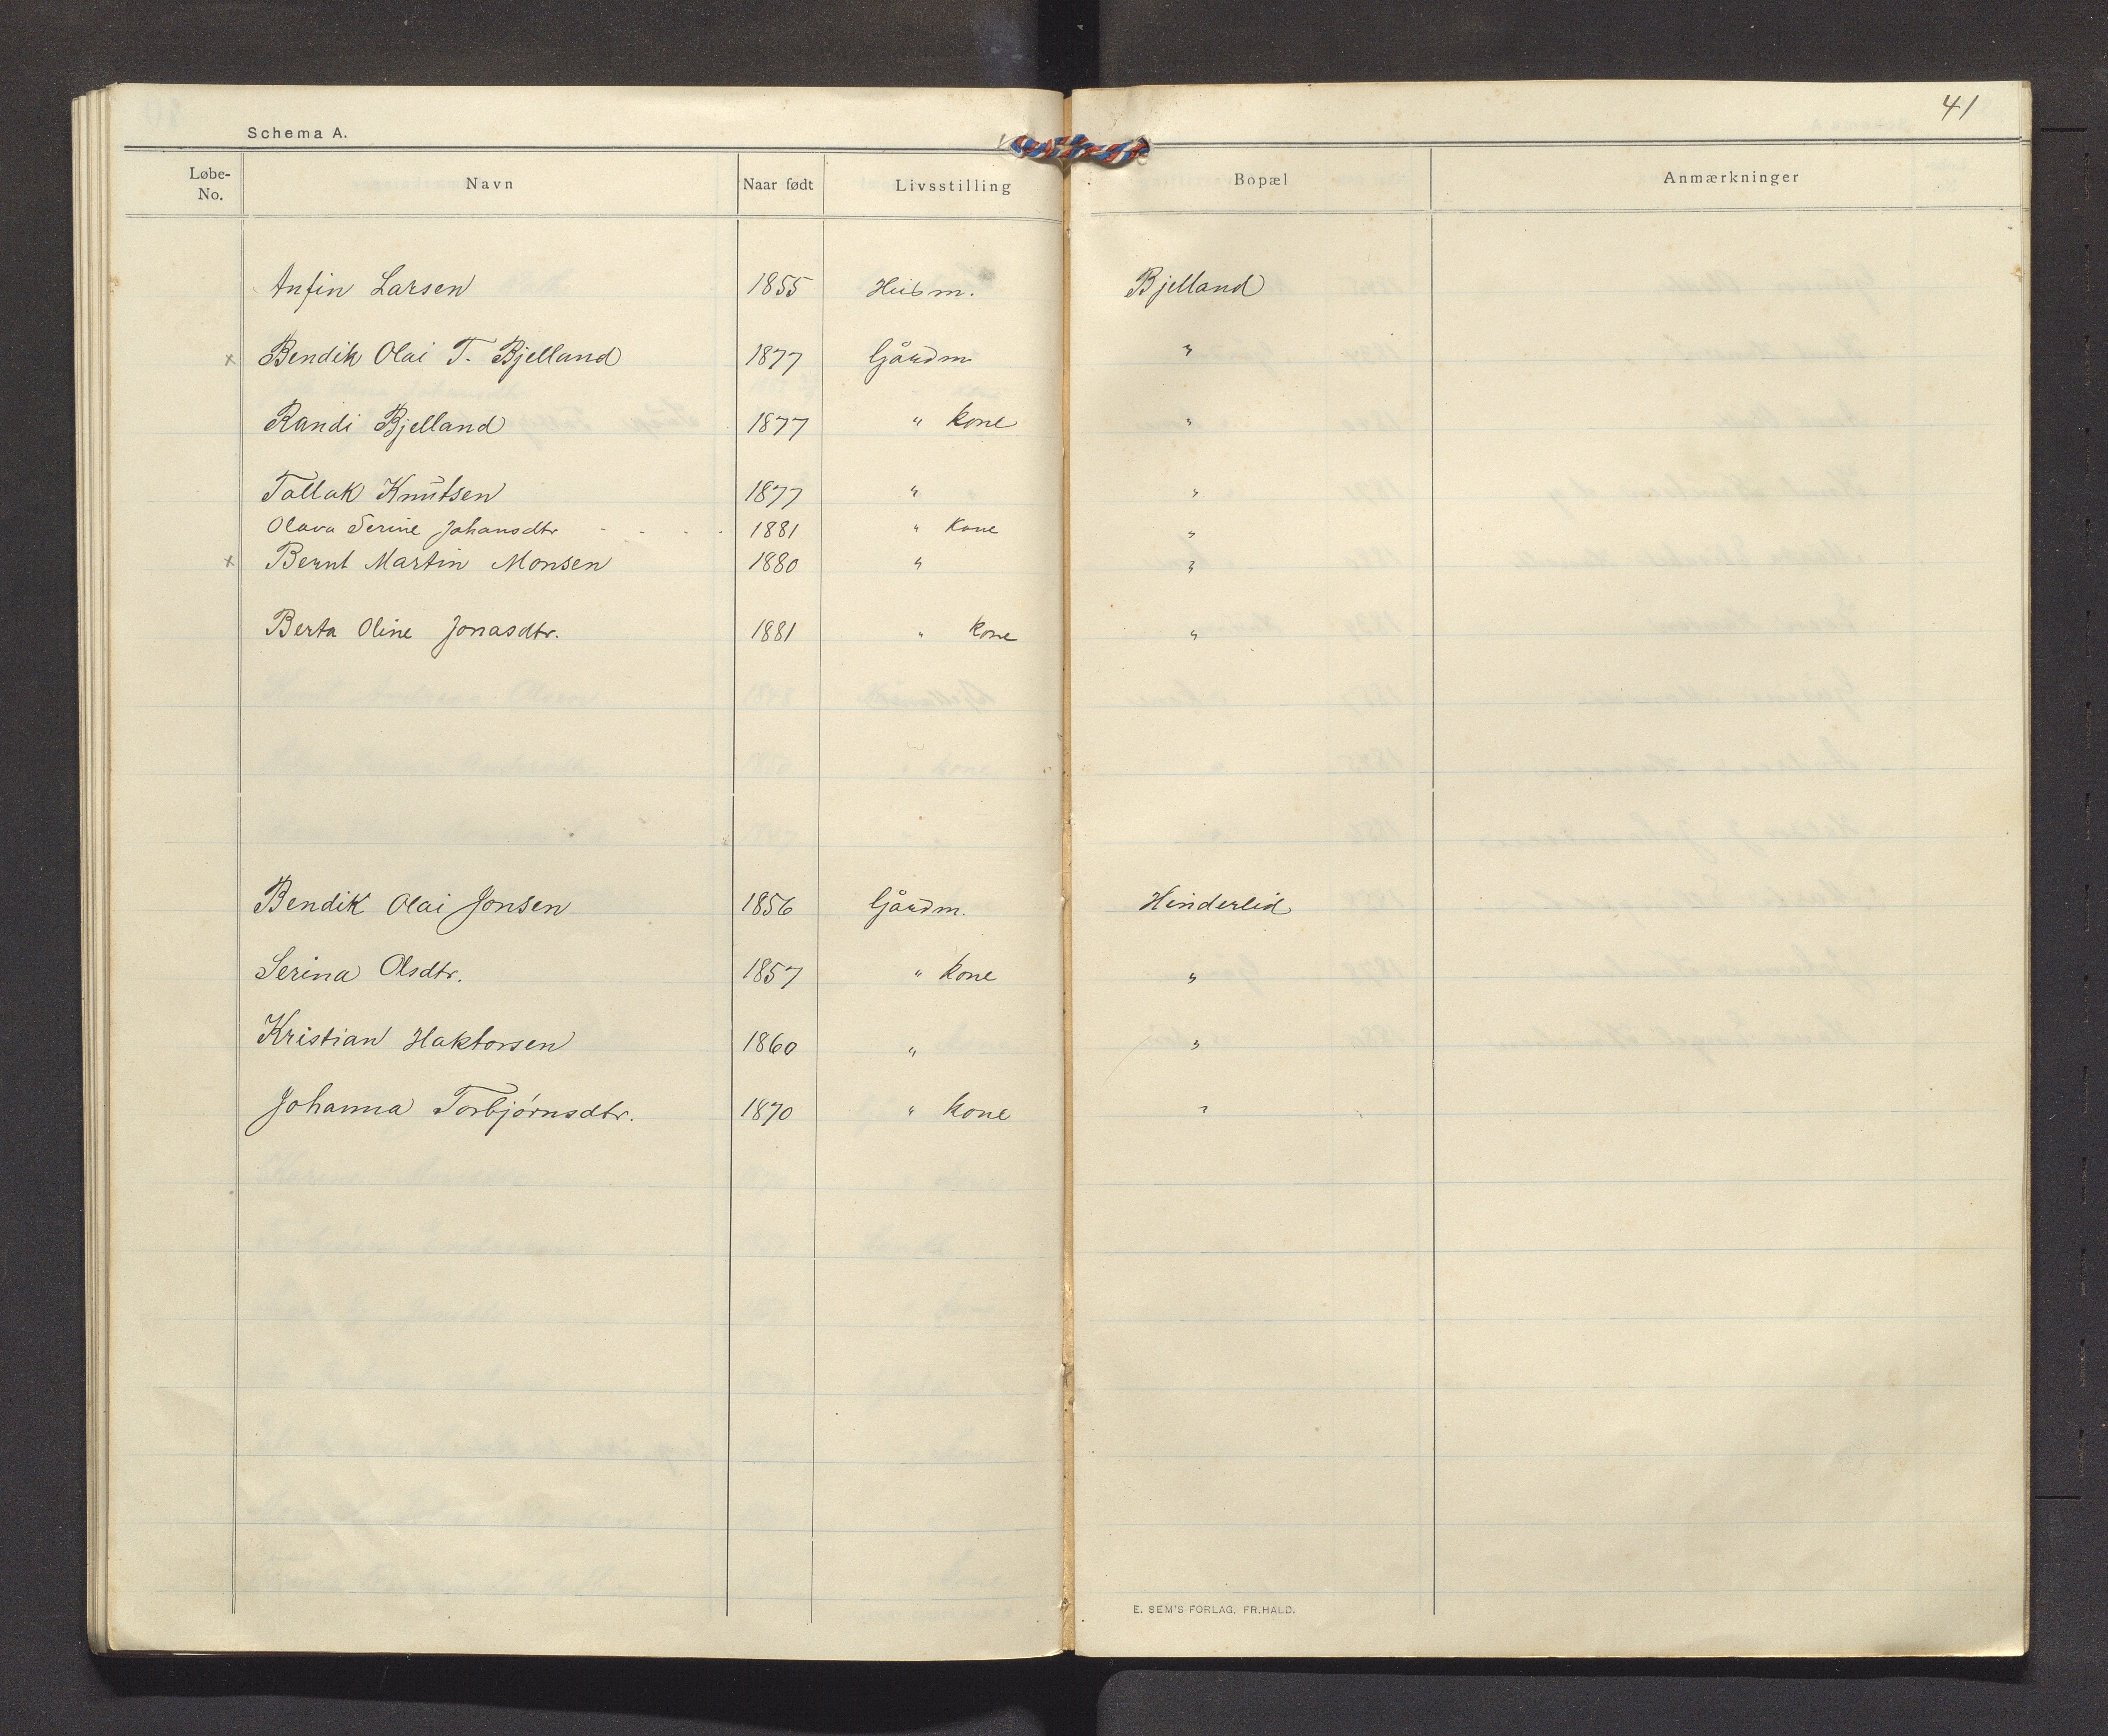 41
Schema A.
Løbe-No. Navn Naar født Livsstilling Bopæl Anmærkninger
Anfin Larsen 1855 Husm. Bjelland
x Bendik Olai T. Bjelland 1877 Gårdm " 
Randi Bjelland 1877 " kone "
Tallak Knutsen 1877 " "
Olava Serine Johansdtr - - - - 1881 " Kone "
x Bernt Martin Monsen 1880 " "
Berta Oline Jonasdtr. 1881 " kone "
Bendik Olai Jonsen 1856 Gårdm. Hinderlid
Serina Olsdtr. 1857 " kone "
Kristian Haktorsen 1860 " "
Johanna Torbjørnsdtr. 1870 " kone "
E. SEM'S FORLAG, FR.HALD.